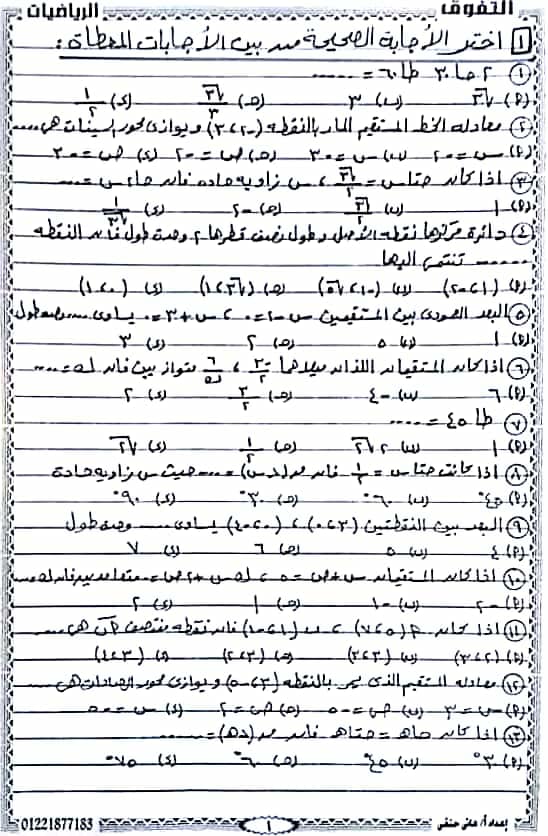 التفوق الرياضيات
١ اختر الأجابة الصحيحة من بين الأجابات المعطاة :
① ٢ حا ٣٠ طا ٦٠ = ......
(أ) √٣ (ب) ٣ (جـ) √٣/٣ (د) ١/٢
② معادله الخط المستقيم المار بالنقطه (-٢،٣) ويوازى محور السينات هى ....
(أ) س = -٢ (ب) س = -٣ (جـ) ص = -٢ (د) ص = -٣
③ اذا كان حتاس = √٣/٢ ، س زاويه حاده فان حا٢س = ....
(أ) ١ (ب) √٣/٢ (جـ) -٢ (د) ١/√٣
④ دائرة مركزها نقطه الأصل وطول نصف قطرها ٢ وحدة طول فأن النقطه
...... تنتمى اليها
(أ) (١،-٢) (ب) (-١،√٥) (جـ) (√٣،١) (د) (٠،١)
⑤ البعد العمودى بين المستقيمين س - ٢ = ٠ ، س + ٣ = ٠ يساوى .... وحده طول
(أ) ١ (ب) ٥ (جـ) ٢ (د) ٣
⑥ اذا كان المستقيمان اللذان ميلاهما -٢/٣ ، ٦/ك متوازيين فان ك = ....
(أ) ٦ (ب) -٤ (جـ) ٣/٢ (د) ٢
⑦ طا ٤٥ = ......
(أ) ١ (ب) ٢√٢ (جـ) ١/٢ (د) √٢
⑧ اذا كانت حتاس = ١/٢ فان ق(د س) = .... حيث س زاويه حادة
(أ) ٤٥° (ب) ٦٠° (جـ) ٣٠° (د) ٩٠°
⑨ البعد بين النقطتين (٣،٠) ، (-٤،٠) يساوى .... وحده طول
(أ) ٤ (ب) ٥ (جـ) ٦ (د) ٧
⑩ اذا كان المستقيمان س + ص = ٥ ، ك س + ٢ص = ٠ متعامدين فان ك = ....
(أ) -٢ (ب) -١ (جـ) ١ (د) ٢
⑪ اذا كان أ (٥،٧) ، ب (١،-١) فان نقطه منتصف أب هى ....
(أ) (٢،٣) (ب) (٣،٢) (جـ) (٣،٢) (د) (٣،٤)
⑫ معادله المستقيم الذى يمر بالنقطه (٣،-٥) ويوازى محور الصادات هى ....
(أ) س = ٣ (ب) ص = -٥ (جـ) ص = ٢ (د) س = -٥
⑬ اذا كان حاهـ = حتاهـ فان ق(د هـ) = ....
(أ) ٣٠° (ب) ٤٥° (جـ) ٦٠° (د) ٧٥°
إعداد أ/ هانى حنفى ١ 01221877183